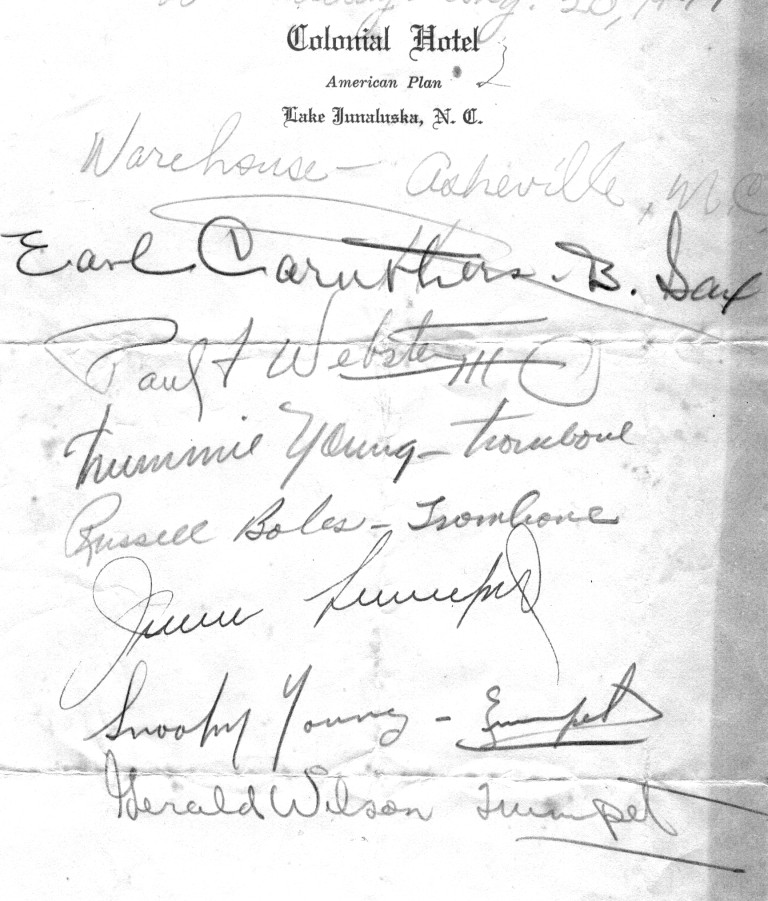 Aug. 20, 19
Colonial Hotel
American Plan
Lake Junaluska, N. C.
Warehouse - Asheville, N.C.
Earl Caruthers - B. Sax
Paul F Webster
Trummie Young - trombone
Russell Boles - Trombone
Snooky Young - Trumpet
Gerald Wilson Trumpet